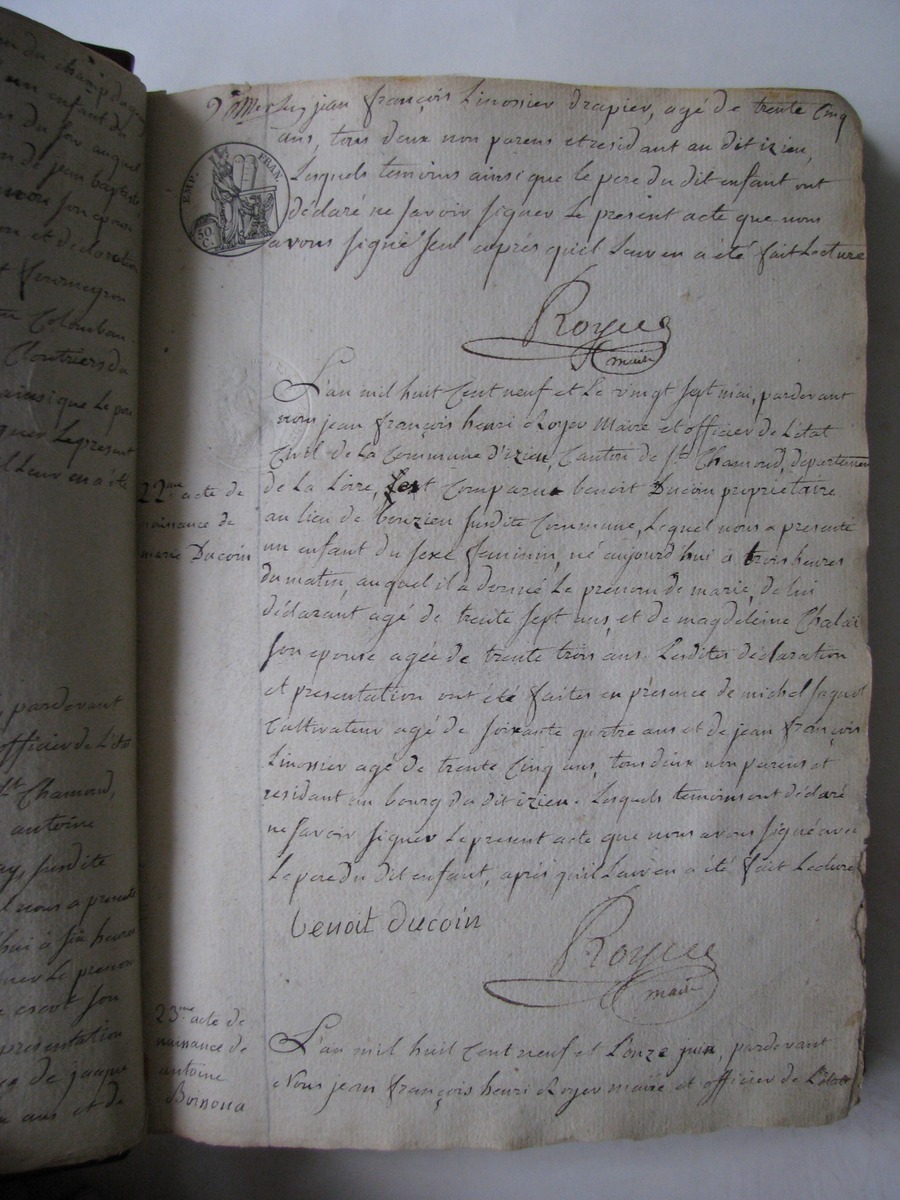 du champ dugay
un enfant du
du jour auquel
de jean baptiste
son epouse
on et déclaration
fourneyron
Colomban
Cloutriers du
ainsi que le pere
le present
leur en a été
pardevant
officier de l'état
St Chamond,
antoine
susdite
nous a presenté
hui à six heures
le prenom
son
presentation
de jacques
ans et de
jean françois Linossier drapier, agé de trente Cinq
ans, tous deux non parens et residant au dit izieu,
Lesquels temoins ainsi que le pere du dit enfant ont
déclaré ne savoir signer le present acte que nous
avons signé seul après qu'il Leur en a été fait Lecture
EMP. FRAN
50 C.
Royer
maire
22me acte de
naissance de
marie Ducoin
L'an mil huit Cent neuf et Le vingt sept mai, pardevant
nous jean françois henri Royer Maire et officier de L'etat
Civil de La Commune d'izieu, Canton de St Chamond, departement
de La Loire, Est Comparu benoit Ducoin propriétaire
au lieu de bonzieu susdite Commune, Lequel nous a presenté
un enfant du sexe feminin, né aujourd'hui à trois heures
du matin, auquel il a donné Le prenom de marie, de lui
déclarant agé de trente sept ans, et de magdeleine Chalai
son epouse agée de trente trois ans. Lesdites déclaration
et presentation ont été faites en présence de michel jaquet
Cultivateur agé de soixante quatre ans et de jean françois
Linossier agé de trente Cinq ans, tous deux non parens et
residant au bourg du dit izieu. Lesquels temoins ont déclaré
ne savoir signer Le present acte que nous avons signé avec
Le pere du dit enfant, après qu'il Leur en a été fait Lecture
benoit ducoin
Royer
maire
23me acte de
naissance de
antoine
L'an mil huit Cent neuf et L'onze juin, pardevant
Nous jean françois henri Royer maire et officier de L'état